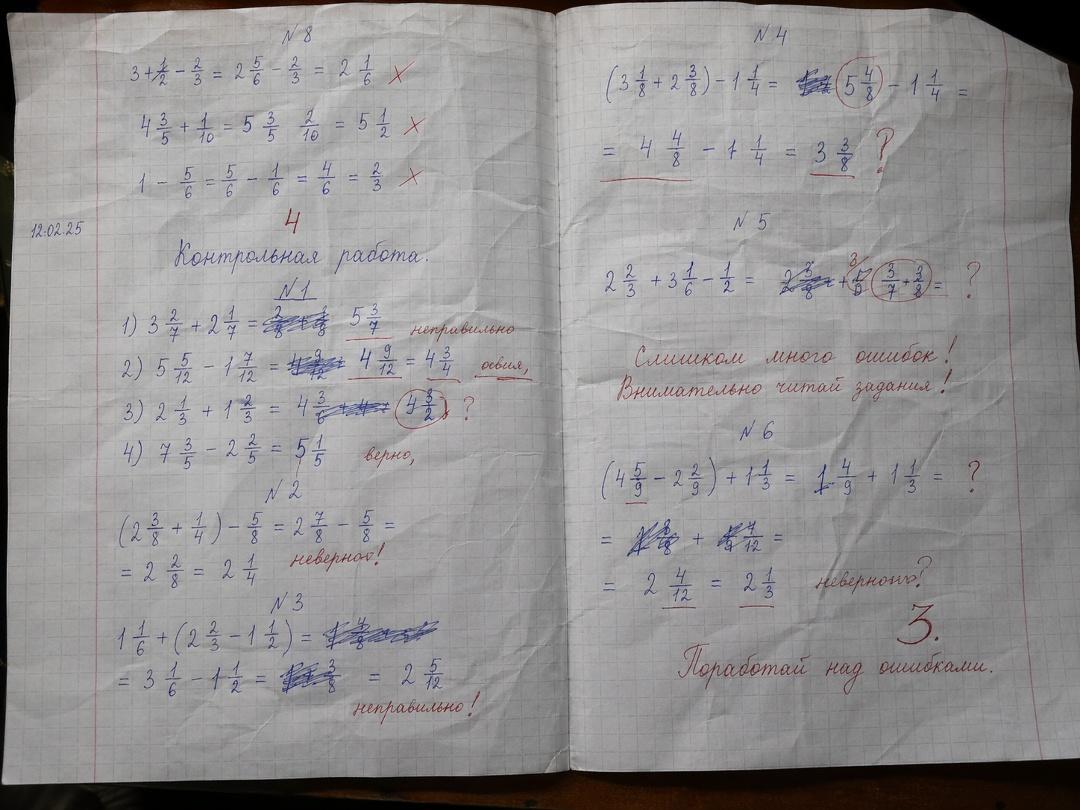 №8
3 + 1/2 - 2/3 = 2 5/6 - 2/3 = 2 1/6 ×
4 3/5 + 1/10 = 5 3/5 2/10 = 5 1/2 ×
1 - 5/6 = 5/6 - 1/6 = 4/6 = 2/3 ×
4
12.02.25
Контрольная работа.
№1
1) 3 2/7 + 2 1/7 = 5 3/7 неправильно
2) 5 5/12 - 1 7/12 = 4 9/12 = 4 3/4
3) 2 1/3 + 1 2/3 = 4 3/2 ?
4) 7 3/5 - 2 2/5 = 5 1/5 верно,
№2
(2 3/8 + 1/4) - 5/8 = 2 7/8 - 5/8 =
= 2 2/8 = 2 1/4 неверно!
№3
1 1/6 + (2 2/3 - 1 1/2) =
= 3 1/6 - 1 1/2 = = 2 5/12
неправильно!
№4
(3 1/8 + 2 3/8) - 1 1/4 = 5 4/8 - 1 1/4 =
= 4 4/8 - 1 1/4 = 3 3/8 ?
№5
2 2/3 + 3 1/6 - 1/2 = 3/7 + 3/8 = ?
Слишком много ошибок!
Внимательно читай задания!
№6
(4 5/9 - 2 2/9) + 1 1/3 = 1 4/9 + 1 1/3 = ?
= + 7/12 =
= 2 4/12 = 2 1/3
3.
Поработай над ошибками.